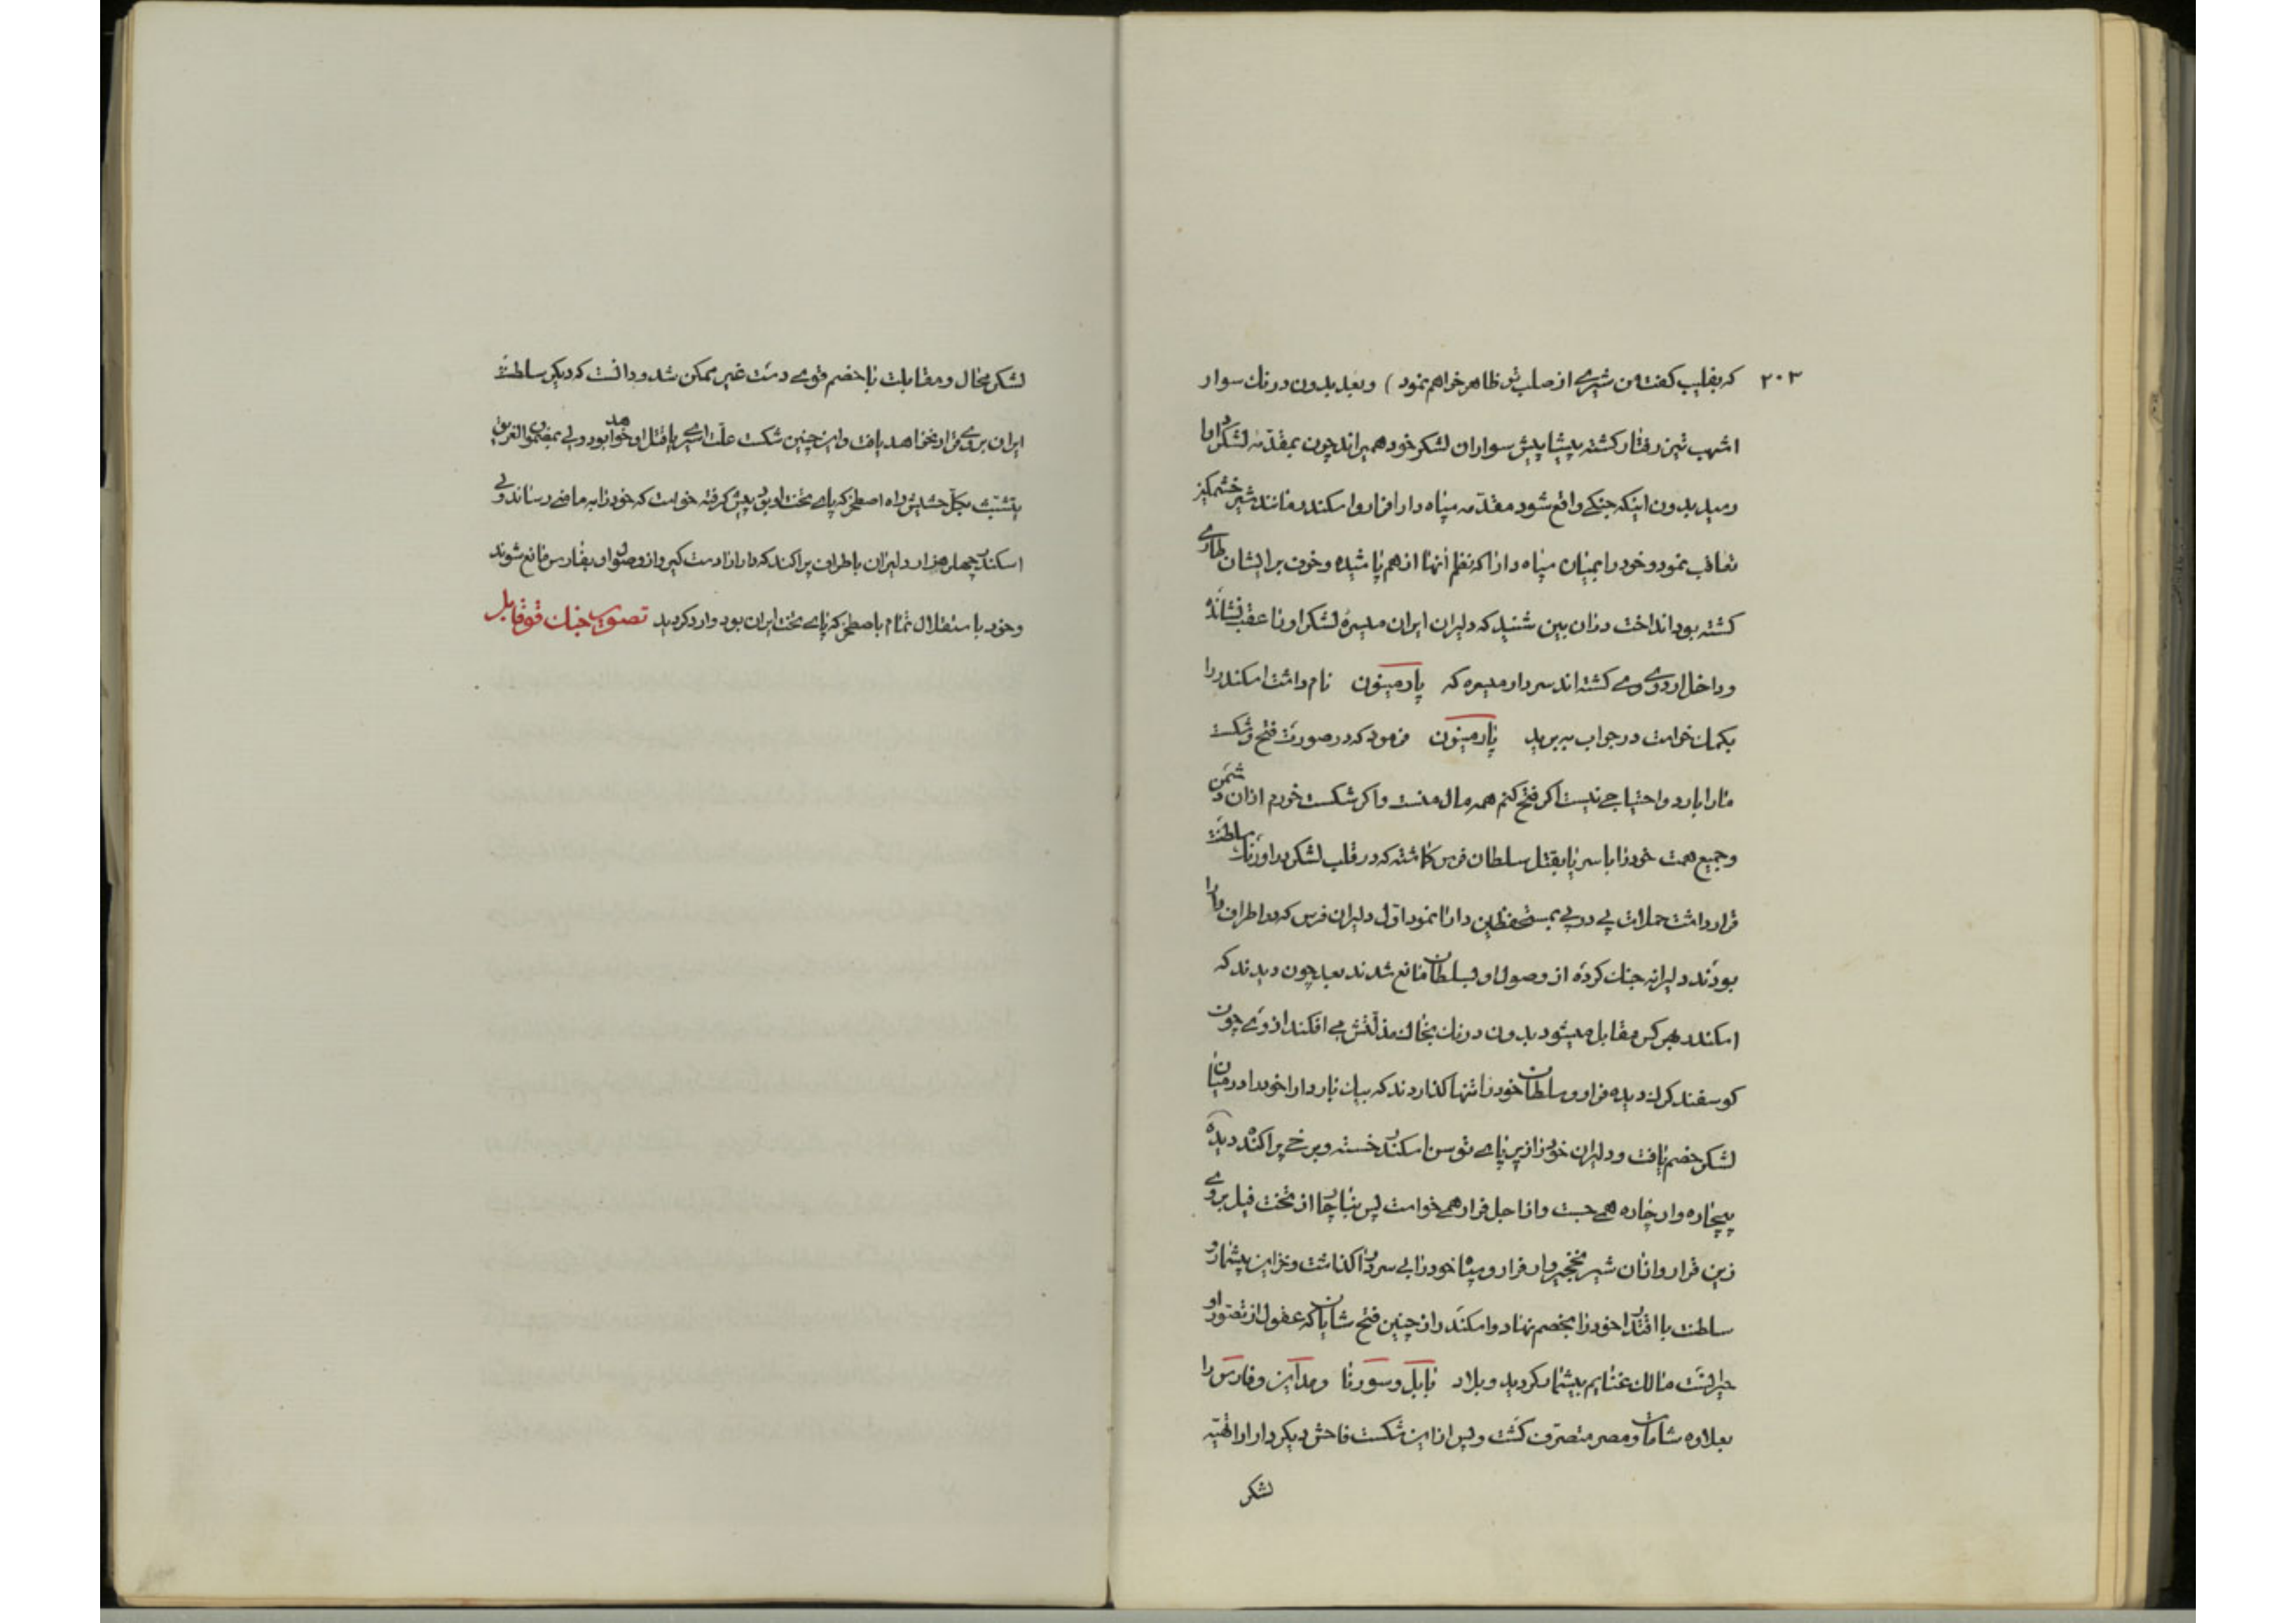 ۲۰۳ که بفلیپ کفت من شیری از صلب تو ظاهر خواهم نمود ) و بعد بدون درنك سوار
اشهب تیز رفتار کشته پیشاپیش سواران لشکر خود همیراند چون بمقدّمه لشکر دارا
رسید بدون اینکه جنکی واقع شود مقدّمه سپاه دارا فرار و اسکندر مانند شیر خشمکین
تعاقب نمود و خود را بمیان سپاه دارا که نظم آنها از هم پاشیده و خوف بر ایشان طاری
کشته بود انداخت در آن بین شنید که دلیران ایران میسرهٔ لشکر او را عقب نشانده
و داخل اردوی وی کشته اند سردار میسره که پارمینون نام داشت اسکندر را
بکمك خواست در جواب سر برید پارمینون فرمود که در صورت فتح و شکست
ما را باردو احتیاجی نیست اکر فتح کنم همه مال منست و اکر شکست خورم از آن دشمن
و جمیع همت خود را با سر پا بقتل سلطان فرس کماشته که در قلب لشکر بر اورنك سلطنت
قرار داشت حملات پی در پی بمستحفظین دارا نمود اوّل دلیران فرس که در اطراف دارا
بودند دلیرانه جنك کرده از وصول او بسلطان مانع شدند بعد چون دیدند که
اسکندر بهر کس مقابل میشود بدون درنك بخاك مذلّتش می افکند از وی چون
کوسفند کرك دیده فرار و سلطان خود را تنها کذاردند که بیك بار دارا خود را در میان
لشکر خصم یافت و دلیران خود را زیر پای توسن اسکندر خسته و برخی پراکنده دیده
بیچاره وار چاره همی جست و از اجل فرار همی خواست پس بناچار از تخت فیل بر روی
زین قرار و از آن شیر نخجیر وار فرار و سپاه خود را بی سردار کذاشت و خزاین بیشمار و
سلطنت با اقتدار خود را بخصم نهاد و اسکندر از چنین فتح شایان که عقول از تصوّر او
حیرانست مالك غنایم بیشمار کردید و بلاد بابل و سورنا و مداین و فارس را
بعلاوه شامات و مصر متصرّف کشت و پس از این شکست فاحش دیکر دارا را تهیّه
لشکر
لشکر محال و مقابلت با خصم قوی دست غیر ممکن شد و دانست که دیکر سلطنت
ایران بر وی قرار نخواهد یافت و این چنین شکست علّت اسیری یا قتل او خواهد بود ولی بمضمون الغریق
یتشبّث بکلّ حشیش راه اصطخر که پای تخت او بود پیش کرفته خواست که خود را به مأمنی رساند ولی
اسکندر چهار هزار دلیران باطراف پراکند که دارا را دست کیر و از وصول او بفارس مانع شوند
و خود با استقلال تمام باصطخر که پای تخت ایران بود وارد کردید تصویر جنك قوقابل